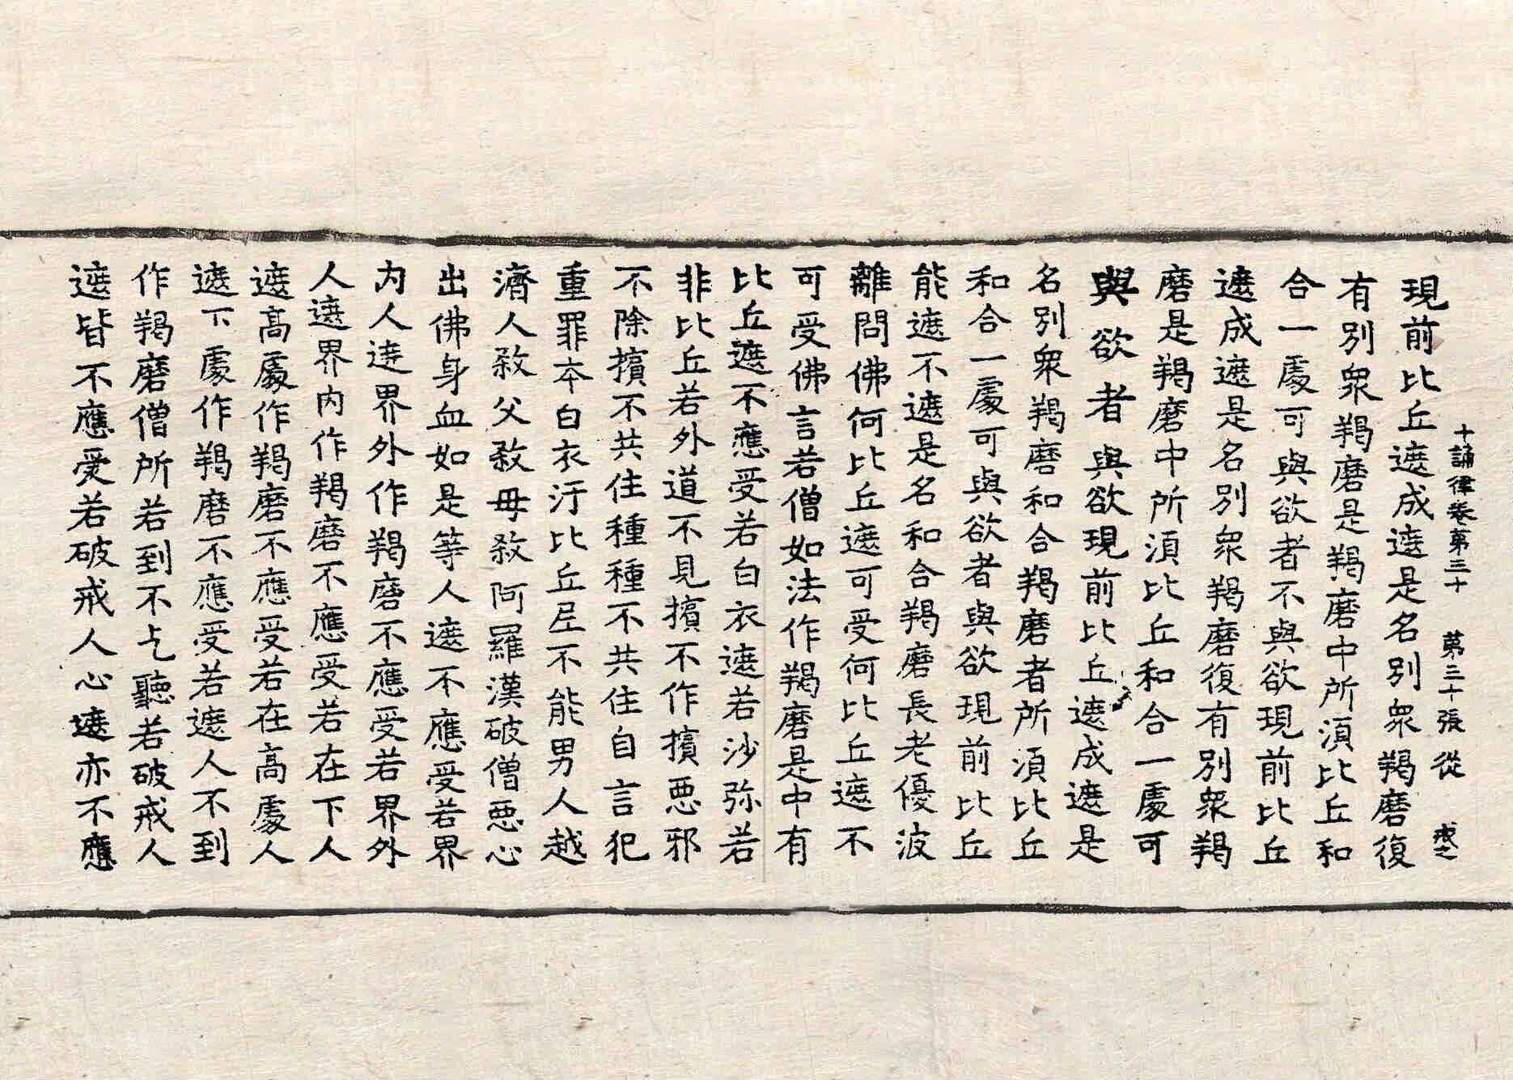 十誦律卷第三十　第三十張　從　戒之
現前比丘遮成遮是名別衆羯磨復
有別衆羯磨是羯磨中所湏比丘和
合一處可與欲者不與欲現前比丘
遮成遮是名別衆羯磨復有別衆羯
磨是羯磨中所湏比丘和合一處可
與欲者與欲現前比丘遮成遮是
名別衆羯磨和合羯磨者所湏比丘
和合一處可與欲者與欲現前比丘
能遮不遮是名和合羯磨長老優波
離問佛何比丘遮可受何比丘遮不
可受佛言若僧如法作羯磨是中有
比丘遮不應受若白衣遮若沙弥若
非比丘若外道不見擯不作擯惡邪
不除擯不共住種種不共住自言犯
重罪本白衣汙比丘尼不能男人越
濟人殺父殺母殺阿羅漢破僧惡心
出佛身血如是等人遮不應受若界
内人遮界外作羯磨不應受若界外
人遮界内作羯磨不應受若在下人
遮高處作羯磨不應受若在高處人
遮下處作羯磨不應受若遮人不到
作羯磨僧所若到不乞聽若破戒人
遮皆不應受若破戒人心遮亦不應